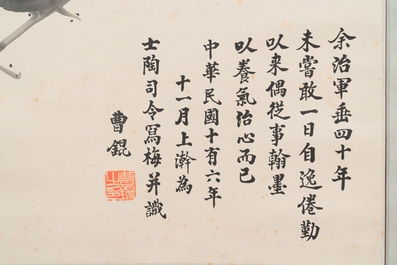 余治軍垂四十年
未嘗敢一日自逸倦勤
以來偶從事翰墨
以養氣治心而已
中華民國十有六年
十一月上澣為
士陶司令寫梅并識
曹錕